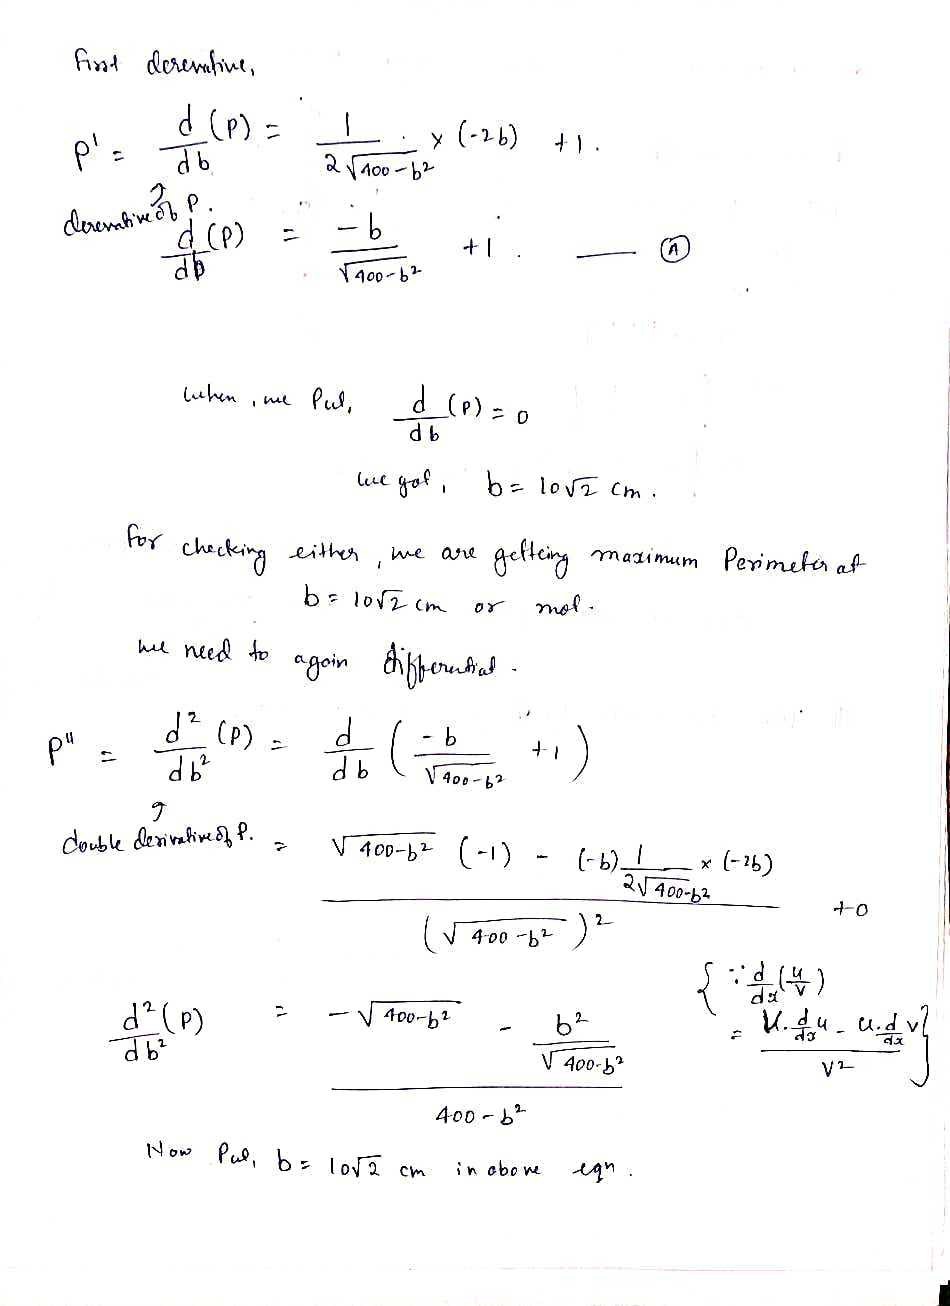 first derevative,
P' = d/db (P) = 1/(2√400-b²) × (-2b) +1.
derevative of P.
d/db (P) = -b/√400-b² +1. —— (A)
When, we Put, d/db (P) = 0
we got, b = 10√2 cm.
for checking either, we are getteing maximum Perimeter at
b = 10√2 cm or not.
we need to again differential.
P" = d²/db² (P) = d/db ( -b/√400-b² +1 )
double derivative of P. = (√400-b² (-1) - (-b) 1/(2√400-b²) × (-2b))/(√400-b²)² +0
{ ∵ d/dx (u/v)
= (V. d/dx u - u. d/dx v)/V² }
d²(P)/db² = (-√400-b² - b²/√400-b²)/(400-b²)
Now Put, b = 10√2 cm in above eqn.